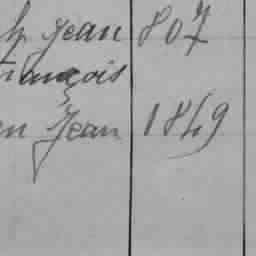 h Jean 807
François
en Jean 1849